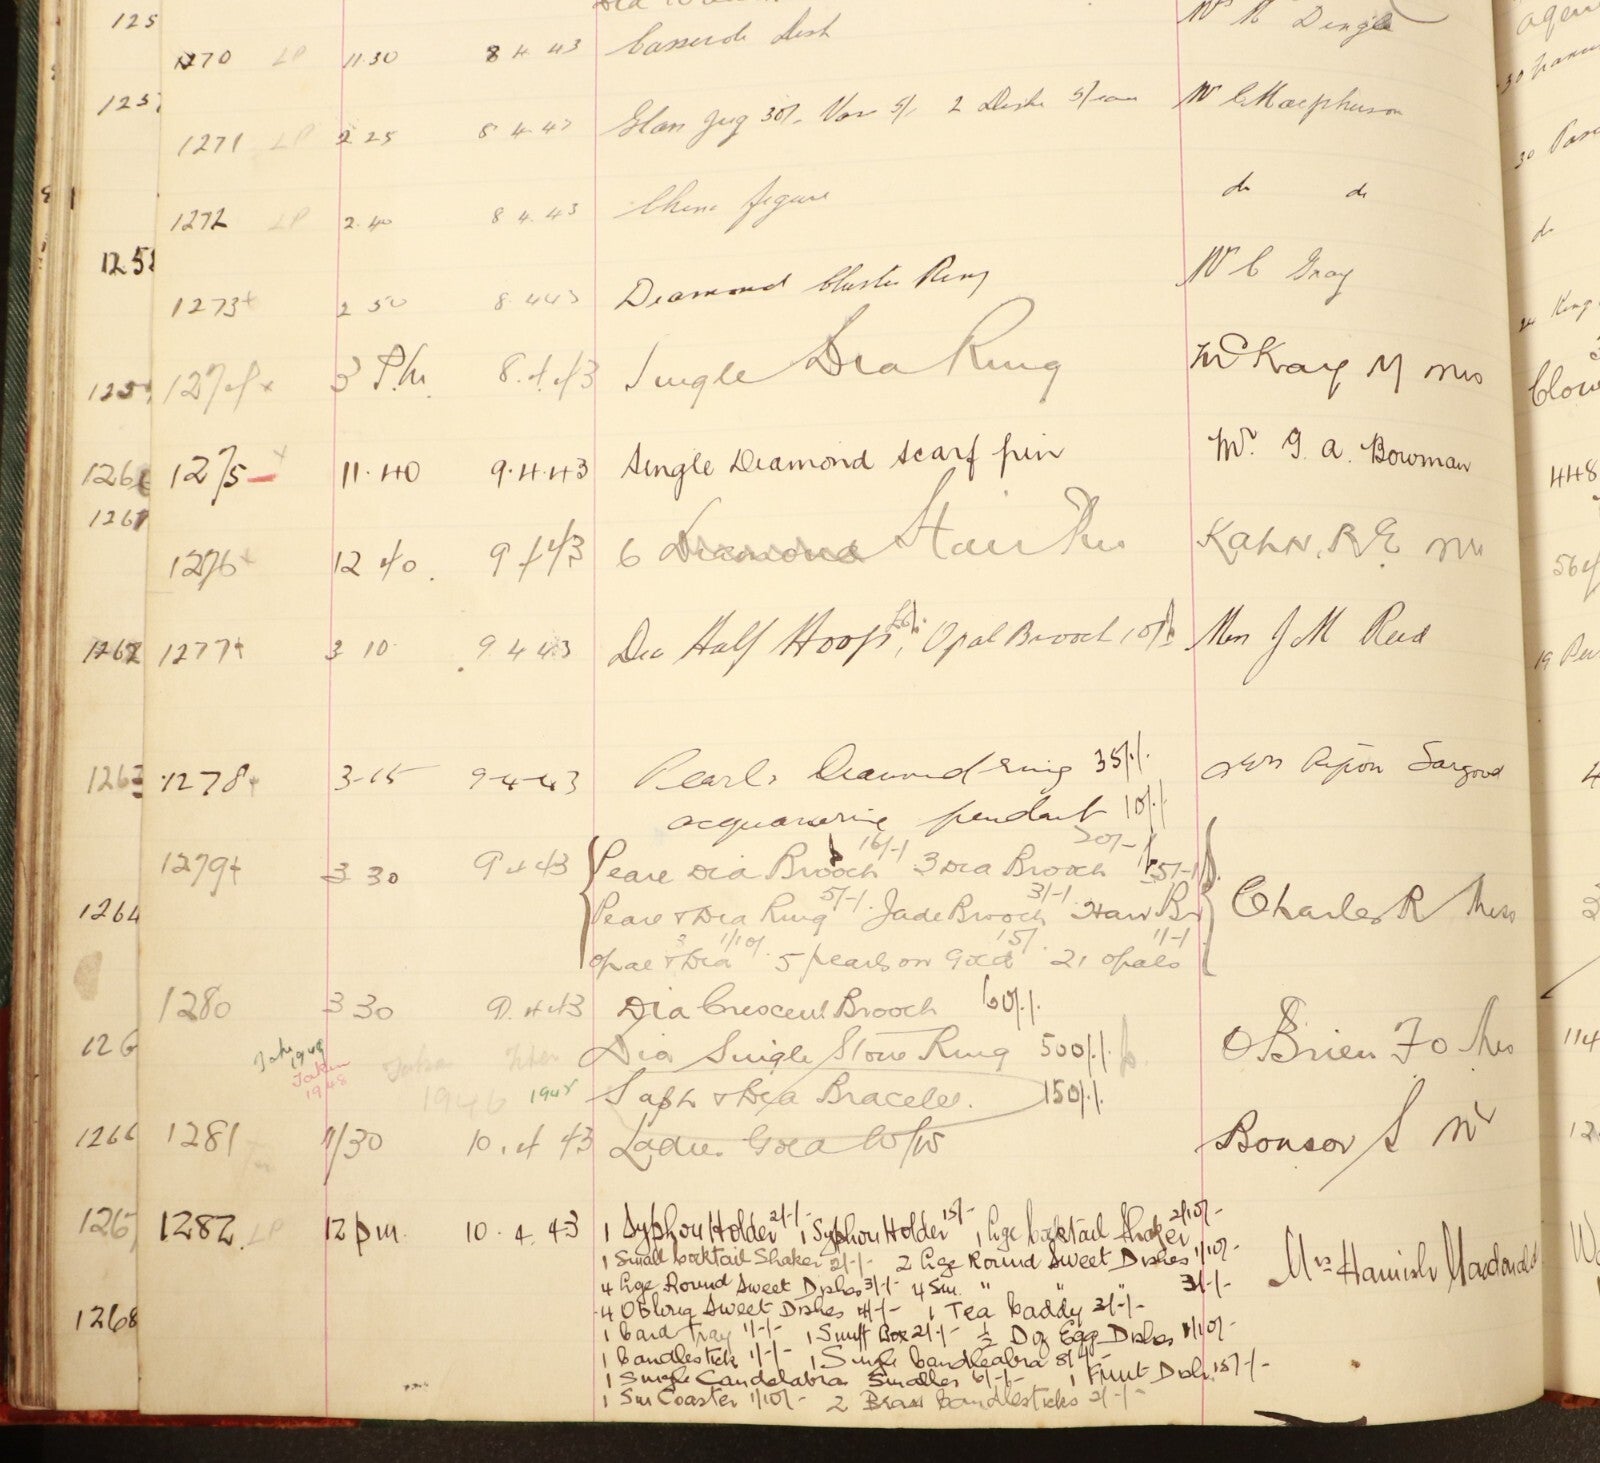 125
1270 LP 11.30 8 4 43 Casserole dish Mrs R Dingle
1271 LP 2 25 8 4 43 Glass Jug 30/- Vase 5/- 2 Dishes 5/- each Mr C Macpherson
1272 LP 2.40 8 4 43 China figure do do
1273+ 2 50 8 4 43 Diamond Cluster Ring Mr C Gray
1274+ 3 P.m. 8.4.43 Single Dia Ring McKay M Mrs
1275 + 11.40 9.4.43 Single Diamond scarf pin Mr. G. A. Bowman
1276+ 12 40. 9 4 43 6 Kahn. R E Mrs
1277+ 3 10 9 4 43 Dia Half Hoop, Opal Brooch 10/- Mrs J M Reid
1263 1278+ 3-15 9-4-43 Pearl & Diamond ring 35/./. Mrs Sargood
acquamarine pendant 10/./.
16/-/ 20/-
1279+ 3 30 9 4 43 Pearl Dia Brooch 3 Dia Brooch
5/-/. 3/-/.
1264 Pearl & Dia Ring Jade Brooch Hair Br Charles R Mrs
1/10/. 15/. 11-/
Opal & Dia 5 pearls on Gold 21 opals
1280 3 30 9.4.43 Dia Crescent Brooch 60/./.
126 Dia Single Stone Ring 500/./. O'Brien F O Mrs 114
Taken
1948
1946 Saph & Dia Bracelet. 150/./.
1266 1281 11/30 10.4 43 Ladies Gold W/W Bonsor S Mr
1282. LP 12 pm. 10.4.43 1 Syphon Holder 2/-/- 1 Syphon Holder 15/- 1 Lge Cocktail Shaker 2/10/-
1 Small Cocktail Shaker 2/-/- 2 Lge Round Sweet Dishes 1/10/- Mrs Hamish Macdonald
4 Lge Round Sweet Dishes 3/-/- 4 Sm. " " 3/-/-
1268 4 Oblong Sweet Dishes 4/-/- 1 Tea Caddy 2/-/-
1 Card Tray 1/-/- 1 Snuff Box 2/-/- ½ Doz Egg Dishes 1/10/-
1 Candlestick 1/-/- 1 Single Candleabra 8/-/-
1 Single Candelabra Smaller 6/-/- 1 Fruit Dish 15/-/-
1 Sm Coaster 1/10/- 2 Brass Candlesticks 2/-/-